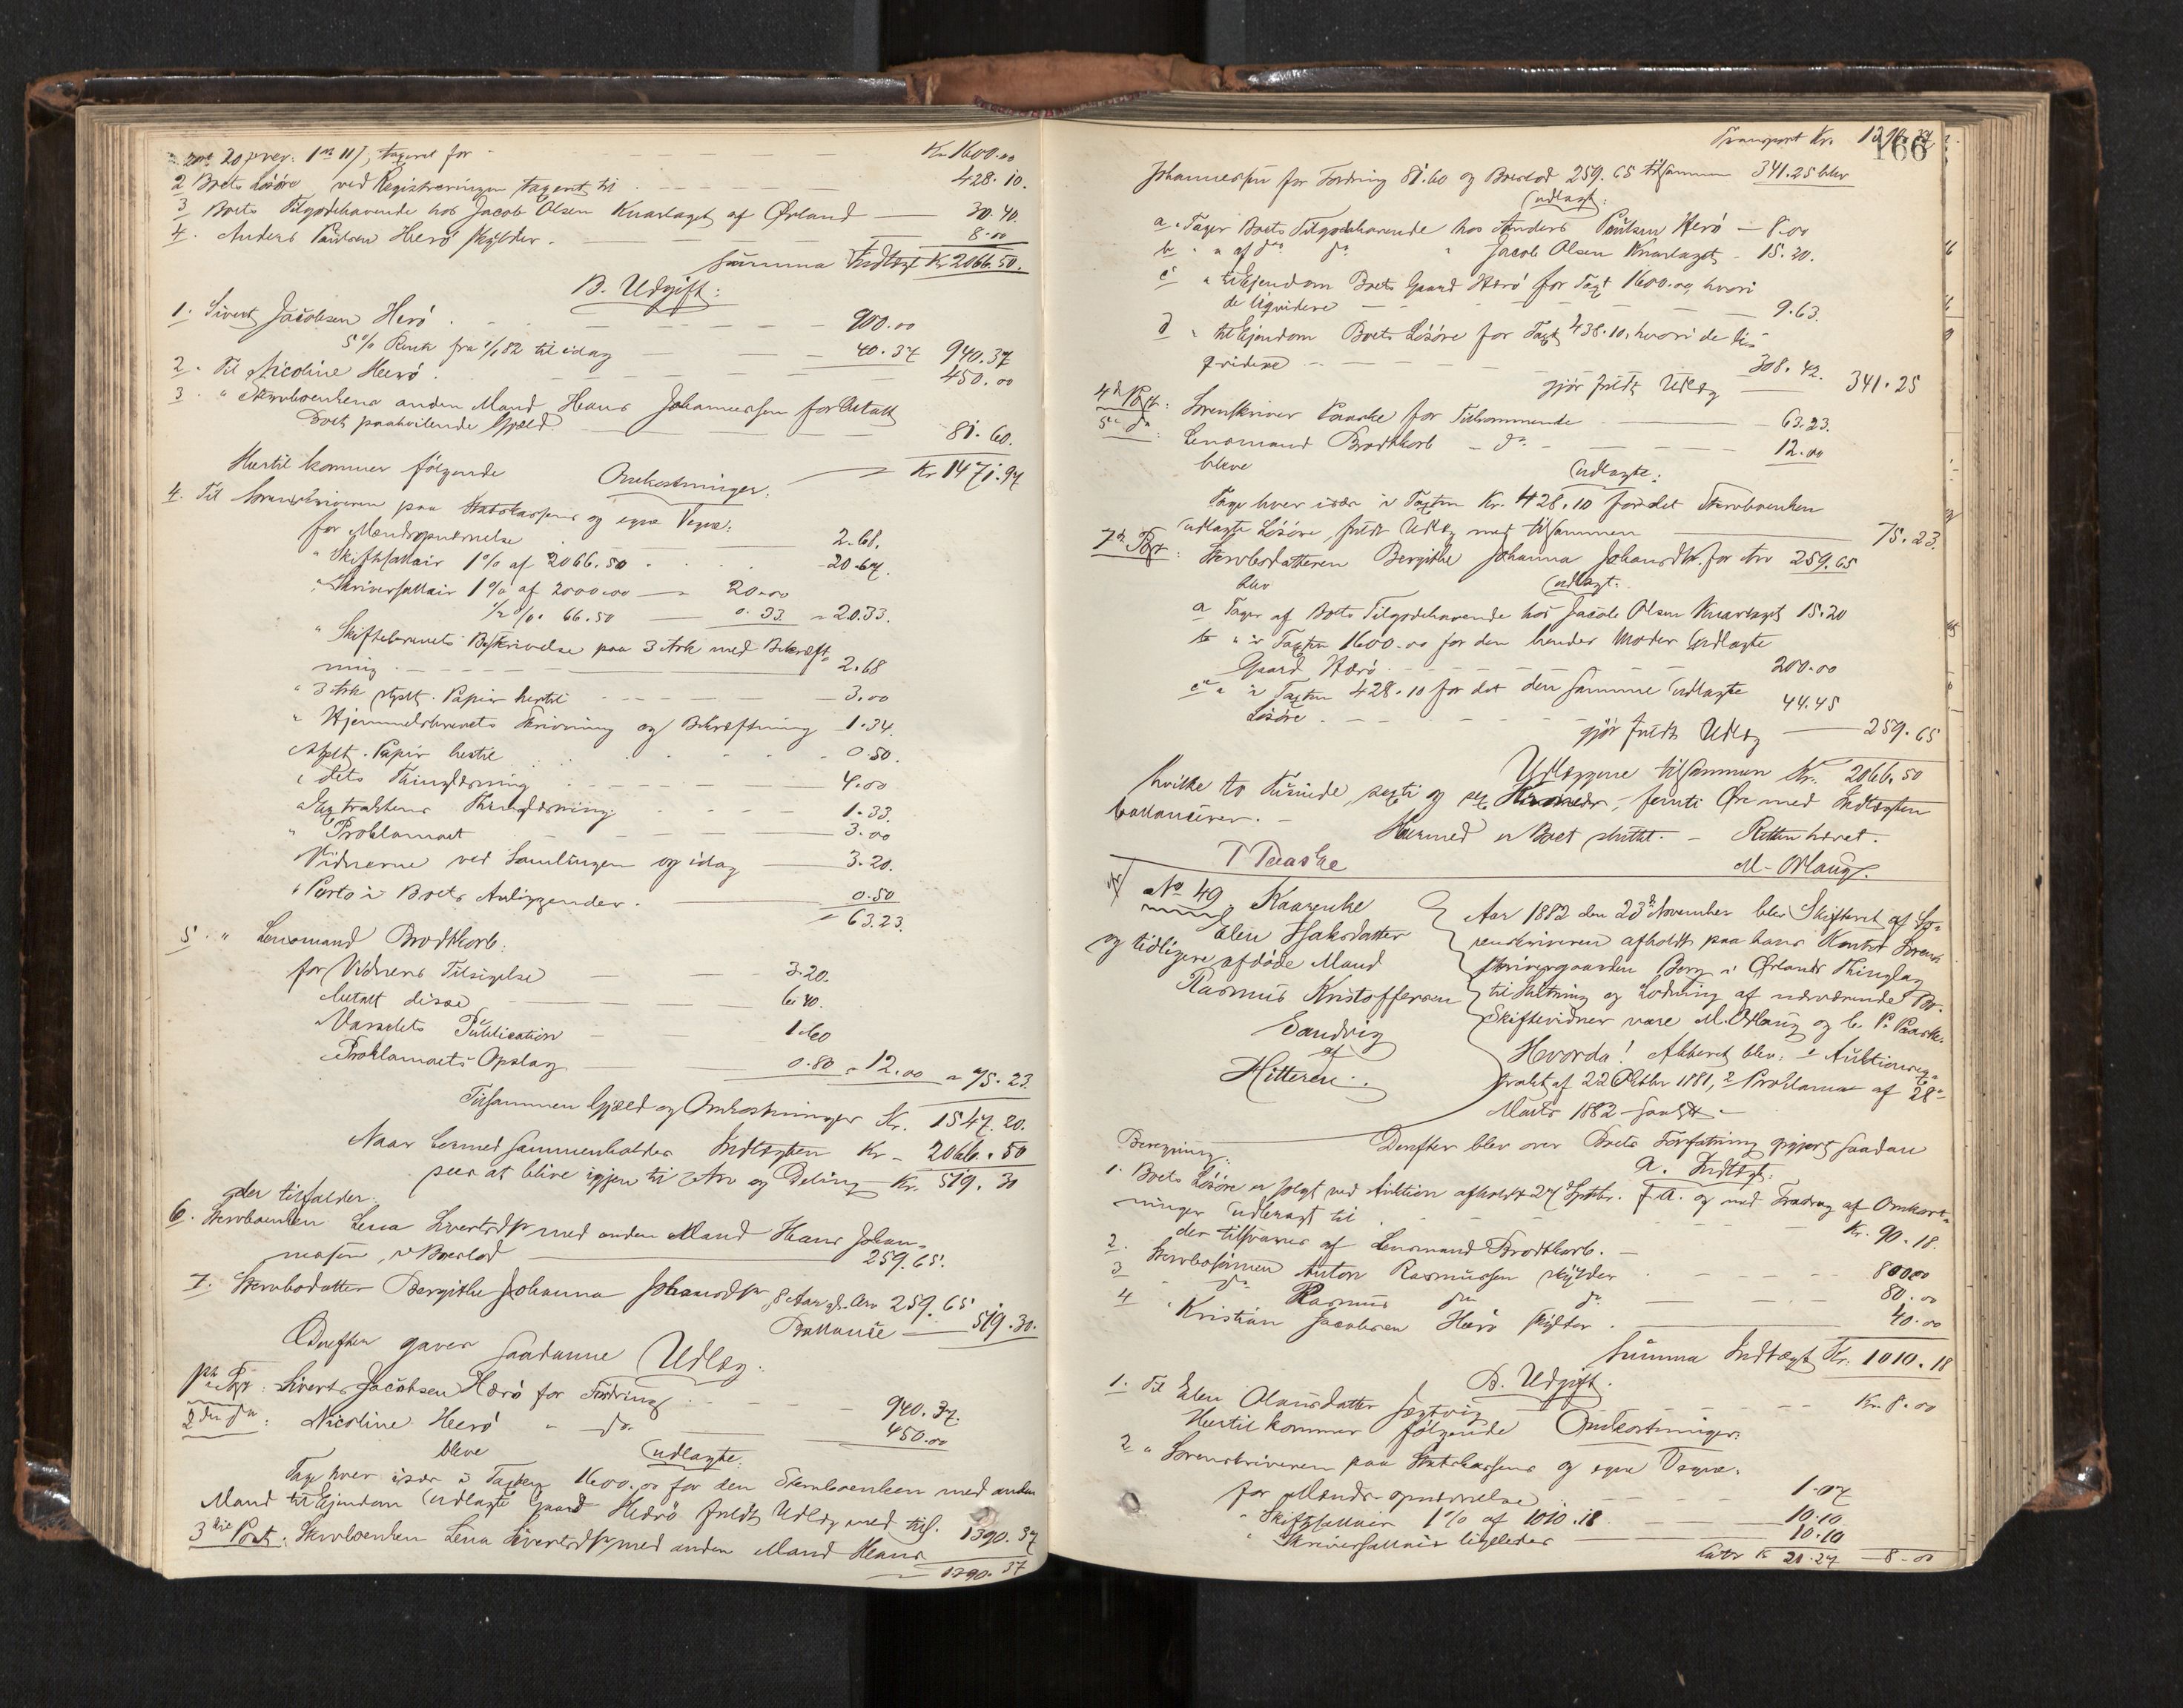 20 prver: 1 m 11/, taxeret for Kr 1600.00
2 Boets Løsöre ved Registreringen taxeret til 428.10.
3 Boets Tilgodehavende hos Jacob Olsen Knarlaget af Ørland 30.40.
4. Anders Paulsen Hierö skylder. 8.00
Summa Indtægt Kr 2066.50.
B. Udgift:
1. Sivert Jacobsen Herö. 900.00
5% Rente fra 82 til idag 40.37 940.37
2. Til Nicoline Heerö. 450.00
3. " Stervboenkens anden Mand Hans Johannessen for betalt
Boet paahvilende Gjæld. 81.60.
Kr 1471.97
Hertil kommer følgende Omkostninger:
4. Til Sorenskriveren paa Statskassens og egne Vegne:
for Mændsopnævnelse 2.68.
" Skiftesallair 1% af 2066.50 20.67.
" Skriversallair 1% af 2000.00 20.00
1/2 % 66.50 0.33 20.33.
" Skiftebrevets Beskrivelse paa 3 Ark med Bekræft-
ning 2.68
" 3 Ark stplt. Papir hertil 3.00
" Hjemmelsbrevets Skrivning og Bekræftning 1.34.
stplt. Papir hertil 0.50.
" dets Thinglæsning 4.00
" Extraktens Thinglæsning 1.33.
" Proklamaet 3.00
Vidnerne ved Samlingen og idag 3.20.
" Porto i Boets Anliggender. 0.50
63.23.
5. " Lensmand Brodtkorb:
for Vidners Tilsigelse 3.20.
betalt disse 6.40.
Varselets Publication 1.60
Proklamaets Opslag 0.80 12.00 75.23.
Tilsammen Gjæld og Omkostninger Kr. 1547.20.
Naar hermed sammenholdes Indtægten Kr 2066.50
sees at blive igjen til Arv og Deling Kr. 519.30
der tilfalder:
6. Stervboenken Lena Sivertsdtr med anden Mand Hans Johan-
nesen, i Boeslod 259.65.
7. Stervbodatter Bergithe Johanna Johansdtr 8 Aar gl. Arv 259.65
Ballance 519.30.
Derefter gaves saadanne Udlæg:
1ste Post: Sivert Jacobsen Herö for Fordring 940.37.
2den do: Nicoline Heerö " do. 450.00
bleve udlagte:
Tage hver især i Taxten 1600.00 for den Stervboenken med anden
Mand til Ejendom udlagte Gaard Hierö fuldt Udlæg med tils. 1390.37
3die Post: Stervboenken Lena Sivertsdtr med anden Mand Hans
1390.37
166
Transport Kr. 1390.37
Johannessen for Fordring 81.60 og Boeslod 259.65 tilsammen 341.25 blev
udlagt:
a. Tager Boets Tilgodehavende hos Anders Paulsen Herö 8.00
b. " af do do " Jacob Olsen Knarlaget 15.20.
c " til Ejendom Boets Gaard Herö for Taxt 1600.00, hvori
de liqvidere 9.63.
d " til Ejendom Boets Løsöre for Taxt 428.10, hvori de li-
qvidere 308.42.
gjör fuldt Udlæg 341.25
4de Post: Sorenskriver Paaske for Tilkommende 63.23.
5te do: Lensmand Brodtkorb " do. 12.00
bleve udlagte:
Tage hver især i Taxten Kr. 428.10 for det Stervboenken
udlagte Løsöre fuldt Udlæg med tilsammen 75.23.
7de Post: Stervbodatteren Bergithe Johanna Johansdtr. for Arv 259.65
blev udlagt:
a Tager af Boets Tilgodehavende hos Jacob Olsen Knarlaget 15.20
b " i Taxten 1600.00 for den hendes Moder udlagte
Gaard Herö 200.00
c " i Taxten 428.10 for det den samme udlagte
Løsöre. 44.45
gjör fuldt Udlæg 259.65
Udlæggene tilsammen Kr. 2066.50
hvilke to tusinde, sexti og sex Kroner, femti Øre med Indtægten
ballancerer.
Hermed er Boet sluttet. Retten hævet.
T Paaske M. Orlaug.
No 49
Elen Isaksdatter
og tidligere afdøde Mand
Rasmus Kristoffersen
Sandvig
af
Hitteren.
Aar 1882 den 23de November blev Skifteret af So-
renskriveren afholdt paa hans Kontor Soren-
skrivergaarden Borg i Ørlands Thinglag
til Slutning og Lodning af nærværende Bo.
Skiftevidner vare M. Orlaug og C. P. Paaske.
Hvorda! Akteret blev: 1 Auktionsex-
trakt af 22 Oktbr 1881, 2 Proklama af 28-
Marts 1882
Derefter blev over Boets Forfatning opgjort saadan
Beregning:
A. Indtægt:
1. Boets Løsöre er solgt ved Auktion afholdt 27de Septbr. f. A. og med Fradrag af Omkost-
ninger udbragt til Kr. 90.18.
der tilsvares af Lensmand Brodtkorb.
2. Stervbosönnen Anton Rasmussen skylder 800.00
3 do Rasmus do do 80.00
4 Kristian Jacobsen Herö skylder. 40.00
Summa Indtægt Kr. 1010.18
B. Udgift.
1. Til Elen Olausdatter Kr 8.00
Hertil kommer følgende Omkostninger:
2 " Sorenskriveren paa Statskassens og egne Vegne:
for Mænds-opnævnelse 1.07
" Skiftesallair 1% af 1010.18 10.10
" Skriversallair ligeledes 10.10
Latr Kr 21.27 8.00